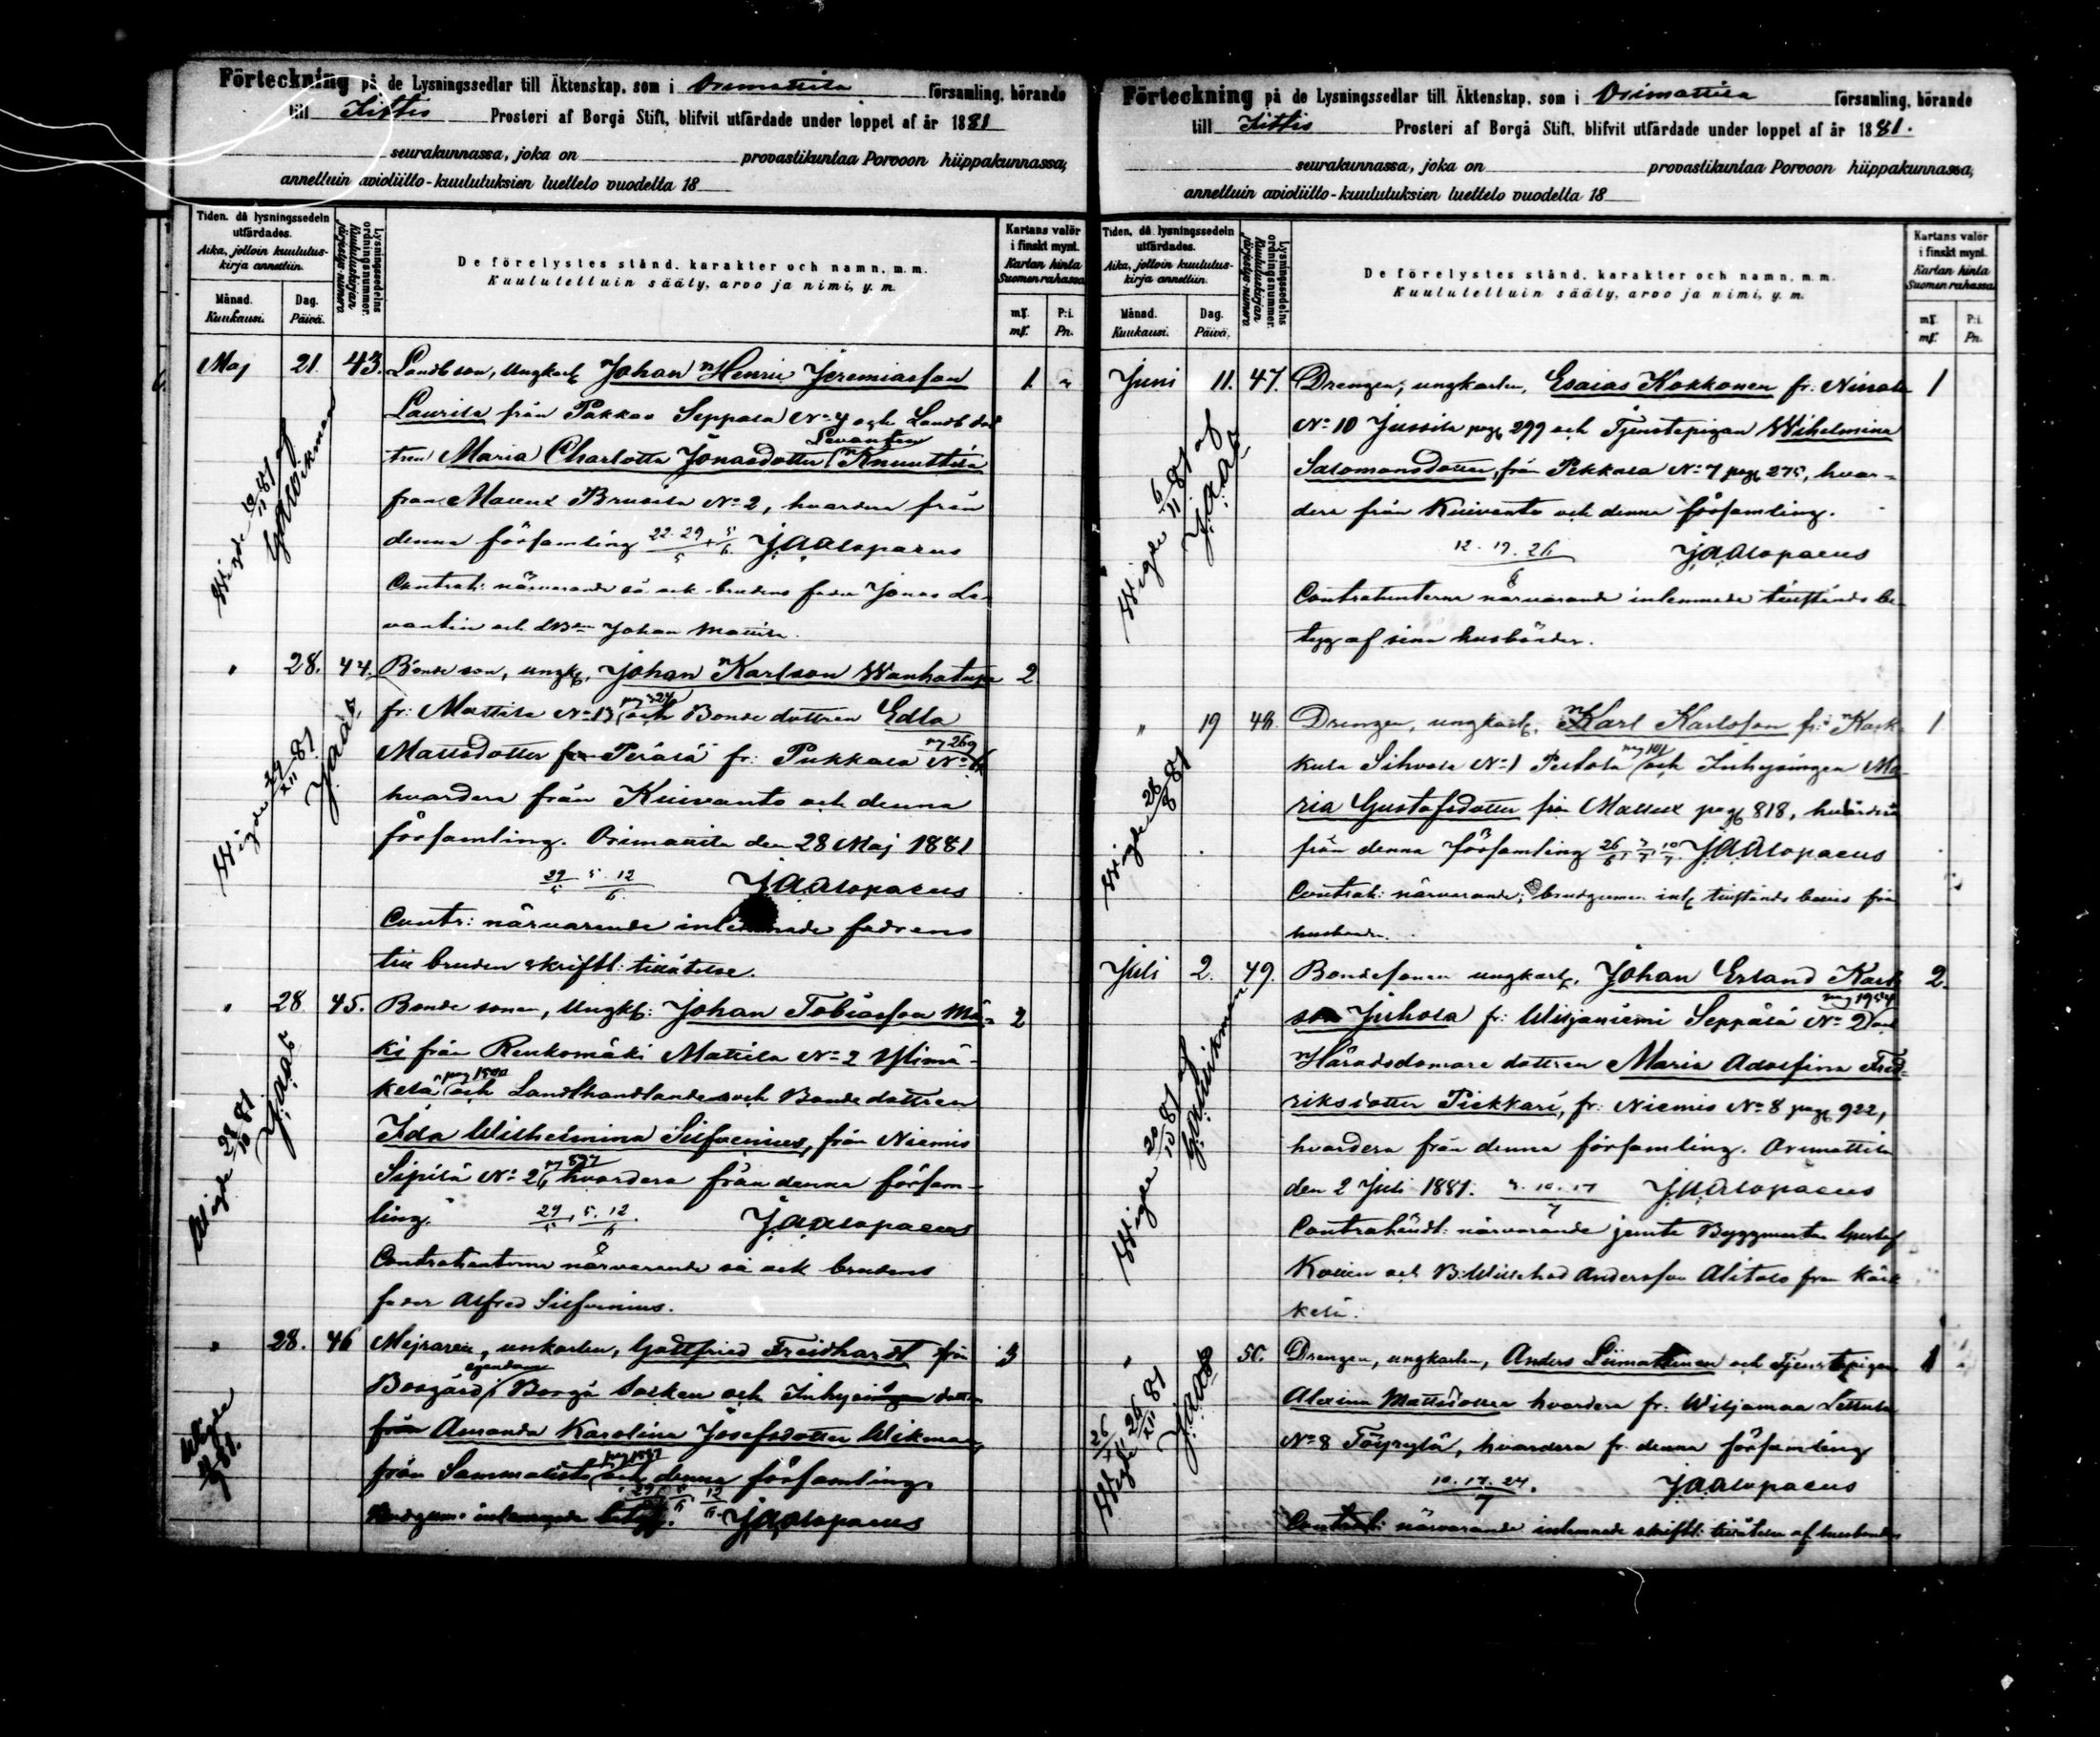 Förteckning på de Lysningssedlar till Äktenskap, som i Orimattila församling, hörande
till Iittis Prosteri af Borgå Stift, blifvit utfärdade under loppet af år 1881
seurakunnassa, joka on provastikuntaa Porvoon hiippakunnassa,
annettuin avioliitto-kuulutuksien luettelo vuodelta 18
Tiden, då lysningssedeln utfärdades.
Aika, jolloin kuulutuskirja annettiin.
Månad.
Kuukausi.
Dag.
Päivä.
Lysningssedelns ordningsnummer.
Kuulutuskirjan järjestys-numero
De förelystes stånd, karakter och namn, m.m.
Kuulutettuin sääty, arvo ja nimi, y.m.
Kartans valör i finskt mynt.
Kartan hinta Suomen rahassa
mk. P:i.
mk. Pn.
Maj 21. 43. Landb son, Ungkarl Johan Henric Jeremiasson 1. "
Laurila från Pakkaa Seppälä No 4 och Landb dot
Levanten
tren Maria Charlotta Jonasdotter Knuuttila
från Mallux Brusila No 2, hvardera från
denna församling 22. 29/5 5/6 JAAlopaeus
Contrah: närvarande så ock brudens fader Jonas Le
vantin och Johan Mattila.
Wigde 12/11 81 af GAWikman
" 28. 44. Bonde son, ungk, Johan Karlson Wanhatupa 2
fr: Mattila No 13 och Bonde dottren Edla
Mattsdotter Perälä fr: Pukkala No
hvardera från Kuivanto och denna
församling. Orimattila den 28 Maj 1881
29/5 5. 12/6 JAAlopaeus
Contr: närvarande inlemnade fadrens
till bruden skriftl: tillåtelse.
Wigde 29/XII 81 JAAls
" 28 45. Bonde sonen, Ungk: Johan Tobiasson Mä- 2
ki från Renkomäki Mattila No 2 Ylimä-
kelä och Landthandlande och Bonde dottren
Ida Wilhelmina Silfvenius, från Niemis
Sipilä No 2 hvardera från denna försam-
ling. 29/5, 5. 12/6. JAAlopaeus
Contrahenterna närvarande så ock brudens
fader Alfred Silfvenius.
Wigde 28/10 81 JAAls
" 28. 46 Mejraren, unkarlen, Gottfried Freidhardt från 3
egendom
Bosgård, Borgå Socken och Inhysingen dotter
från Amanda Karolina Josefsdotter Wikman
från Sammalisto och denna församling.
Brudgum: inlemnade betyg. 29/5 5/6 12/6 JAAlopaeus
Wigde 81.
Förteckning på de Lysningssedlar till Äktenskap, som i Orimattila församling, hörande
till Iittis Prosteri af Borgå Stift, blifvit utfärdade under loppet af år 1881.
seurakunnassa, joka on provastikuntaa Porvoon hiippakunnassa,
annettuin avioliitto-kuulutuksien luettelo vuodelta 18
Tiden, då lysningssedeln utfärdades.
Aika, jolloin kuulutuskirja annettiin.
Månad.
Kuukausi.
Dag.
Päivä.
Lysningssedelns ordningsnummer.
Kuulutuskirjan järjestys-numero
De förelystes stånd, karakter och namn, m.m.
Kuulutettuin sääty, arvo ja nimi, y.m.
Kartans valör i finskt mynt.
Kartan hinta Suomen rahassa.
mk. P:i.
mk. Pn.
Juni 11. 47. Drengen, ungkarlen, Esaias Kokkonen fr: 1
No 10 Jussila pag 299 och Tjenstepigan Wilhelmina
Salomonsdotter, från Pekkala No 7 pag 275, hvar-
dera från Kuivanto och denna församling.
12. 19. 26/6 JAAlopaeus
Contrahenterna närvarande inlemnade tillstånds be-
tyg af sina husbönder.
Wigde 6/11 81 af JAAls
" 19 48. Drengen, ungkarl, Karl Karlsson fr: Kark- 1
kula Sihvola No 1 Peltola och Inhysingen Ma-
ria Gustafsdotter från Mallux pag 818, hvardera
från denna församling 26/6, 3/7, 10/7. JAAlopaeus
Contrah: närvarande; brudgummen inl tillstånds bevis från
husbonde.
Wigde 28/8 81
Juli 2. 49. Bondesonen ungkarl, Johan Erland Karls 2.
son Juhola fr: Wiljaniemi Seppälä No 2 och
Häradsdomare dottren Maria Adolfina Fred-
riksdotter Piekkari, fr: Niemis No 8 pag 922,
hvardera från denna församling. Orimattila
den 2 Juli 1881. 3. 10. 17/7 JAAlopaeus
Contrahendt: närvarande jemte Byggmästar Gustaf
och B: Willehad Andersson Alitalo från Kärk
kelä.
Wigde 20/10 81 af GAWikman
" 50. Drengen, ungkarlen, Anders Liimattainen och Tjenstepigan 1
Alexina Mattsdotter hvardera fr. Wiljamaa Lettula
No 8 Töyrylä, hvardera fr. denna församling
10. 17. 24/7. JAAlopaeus
Contrah: närvarande inlemnade skriftl: tillåtelse af husbonden
Wigde 26/XII 81 JAAls